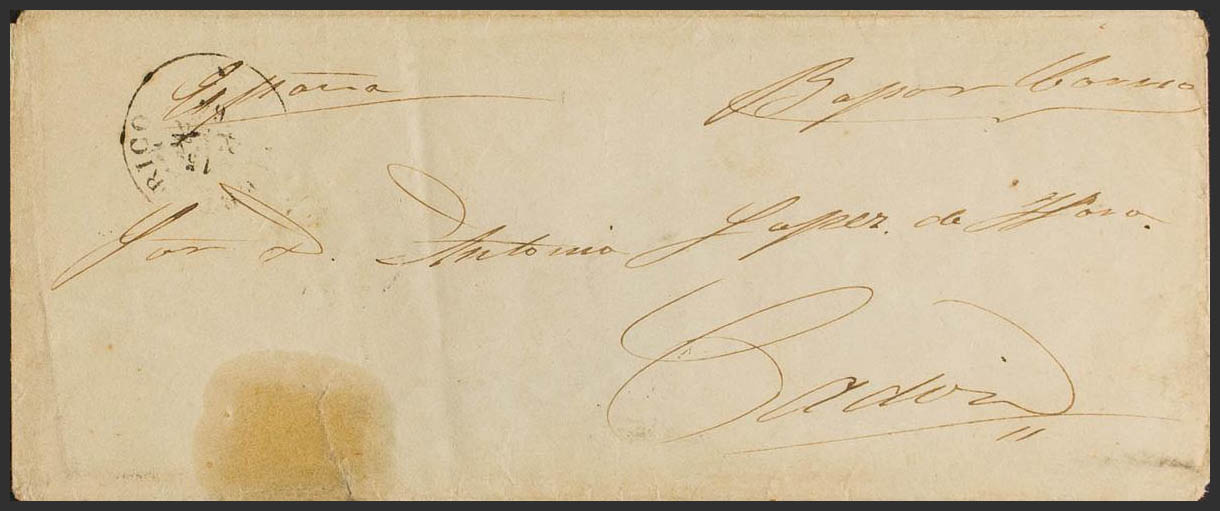 España Bapor Correo
RICO
15
Sor D. Antonio Lopez. de Haro.
Cadiz